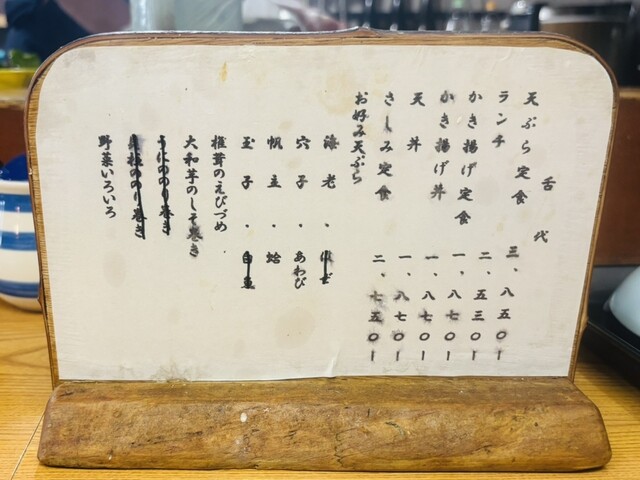 舌代
天ぷら定食 三、八五〇ー
ランチ 二、五三〇ー
かき揚げ定食 一、八七〇ー
かき揚げ丼 一、八七〇ー
天丼 一、八七〇ー
さしみ定食 二、七五〇ー
お好み天ぷら
海老・
穴子・あわび
帆立・蛤
玉子・白魚
椎茸のえびづめ
大和芋のしそ巻き
うにののり巻き
貝柱ののり巻き
野菜いろいろ